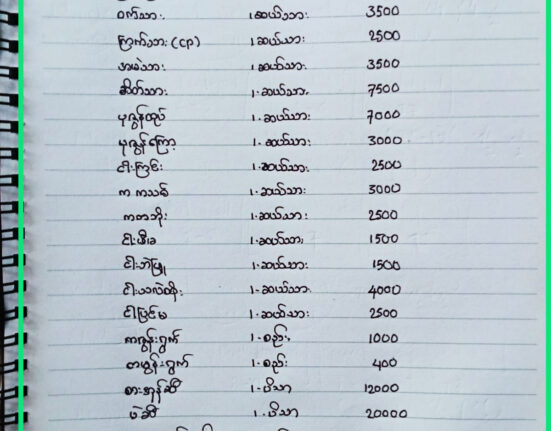 ဝက်သား ၊ ဆယ်သား 3500
ကြက်သား (CP) ၊ ဆယ်သား 2500
အမဲသား ၊ ဆယ်သား 3500
ဆိတ်သား ၊ ဆယ်သား 7500
ပုဇွန်ထုပ် ၊ ဆယ်သား 7000
ပုဇွန်ကြော့ ၊ ဆယ်သား 3000
ငါးကြင်း ၊ ဆယ်သား 2500
က ကသစ် ၊ ဆယ်သား 3000
ကတဘိုး ၊ ဆယ်သား 2500
ငါး ၊ ဆယ်သား 1500
ငါးဘဲဖြူ ၊ ဆယ်သား 1500
ငါးသလဲထိုး ၊ ဆယ်သား 4000
ငါးမြင်မ ၊ ဆယ်သား 2500
ကဇွန်းရွက် ၊ စည်း 1000
ရွက် ၊ စည်း 400
စားအုန်ဆီ ၊ ပိဿာ 12000
ပဲဆီ ၊ ပိဿာ 20000